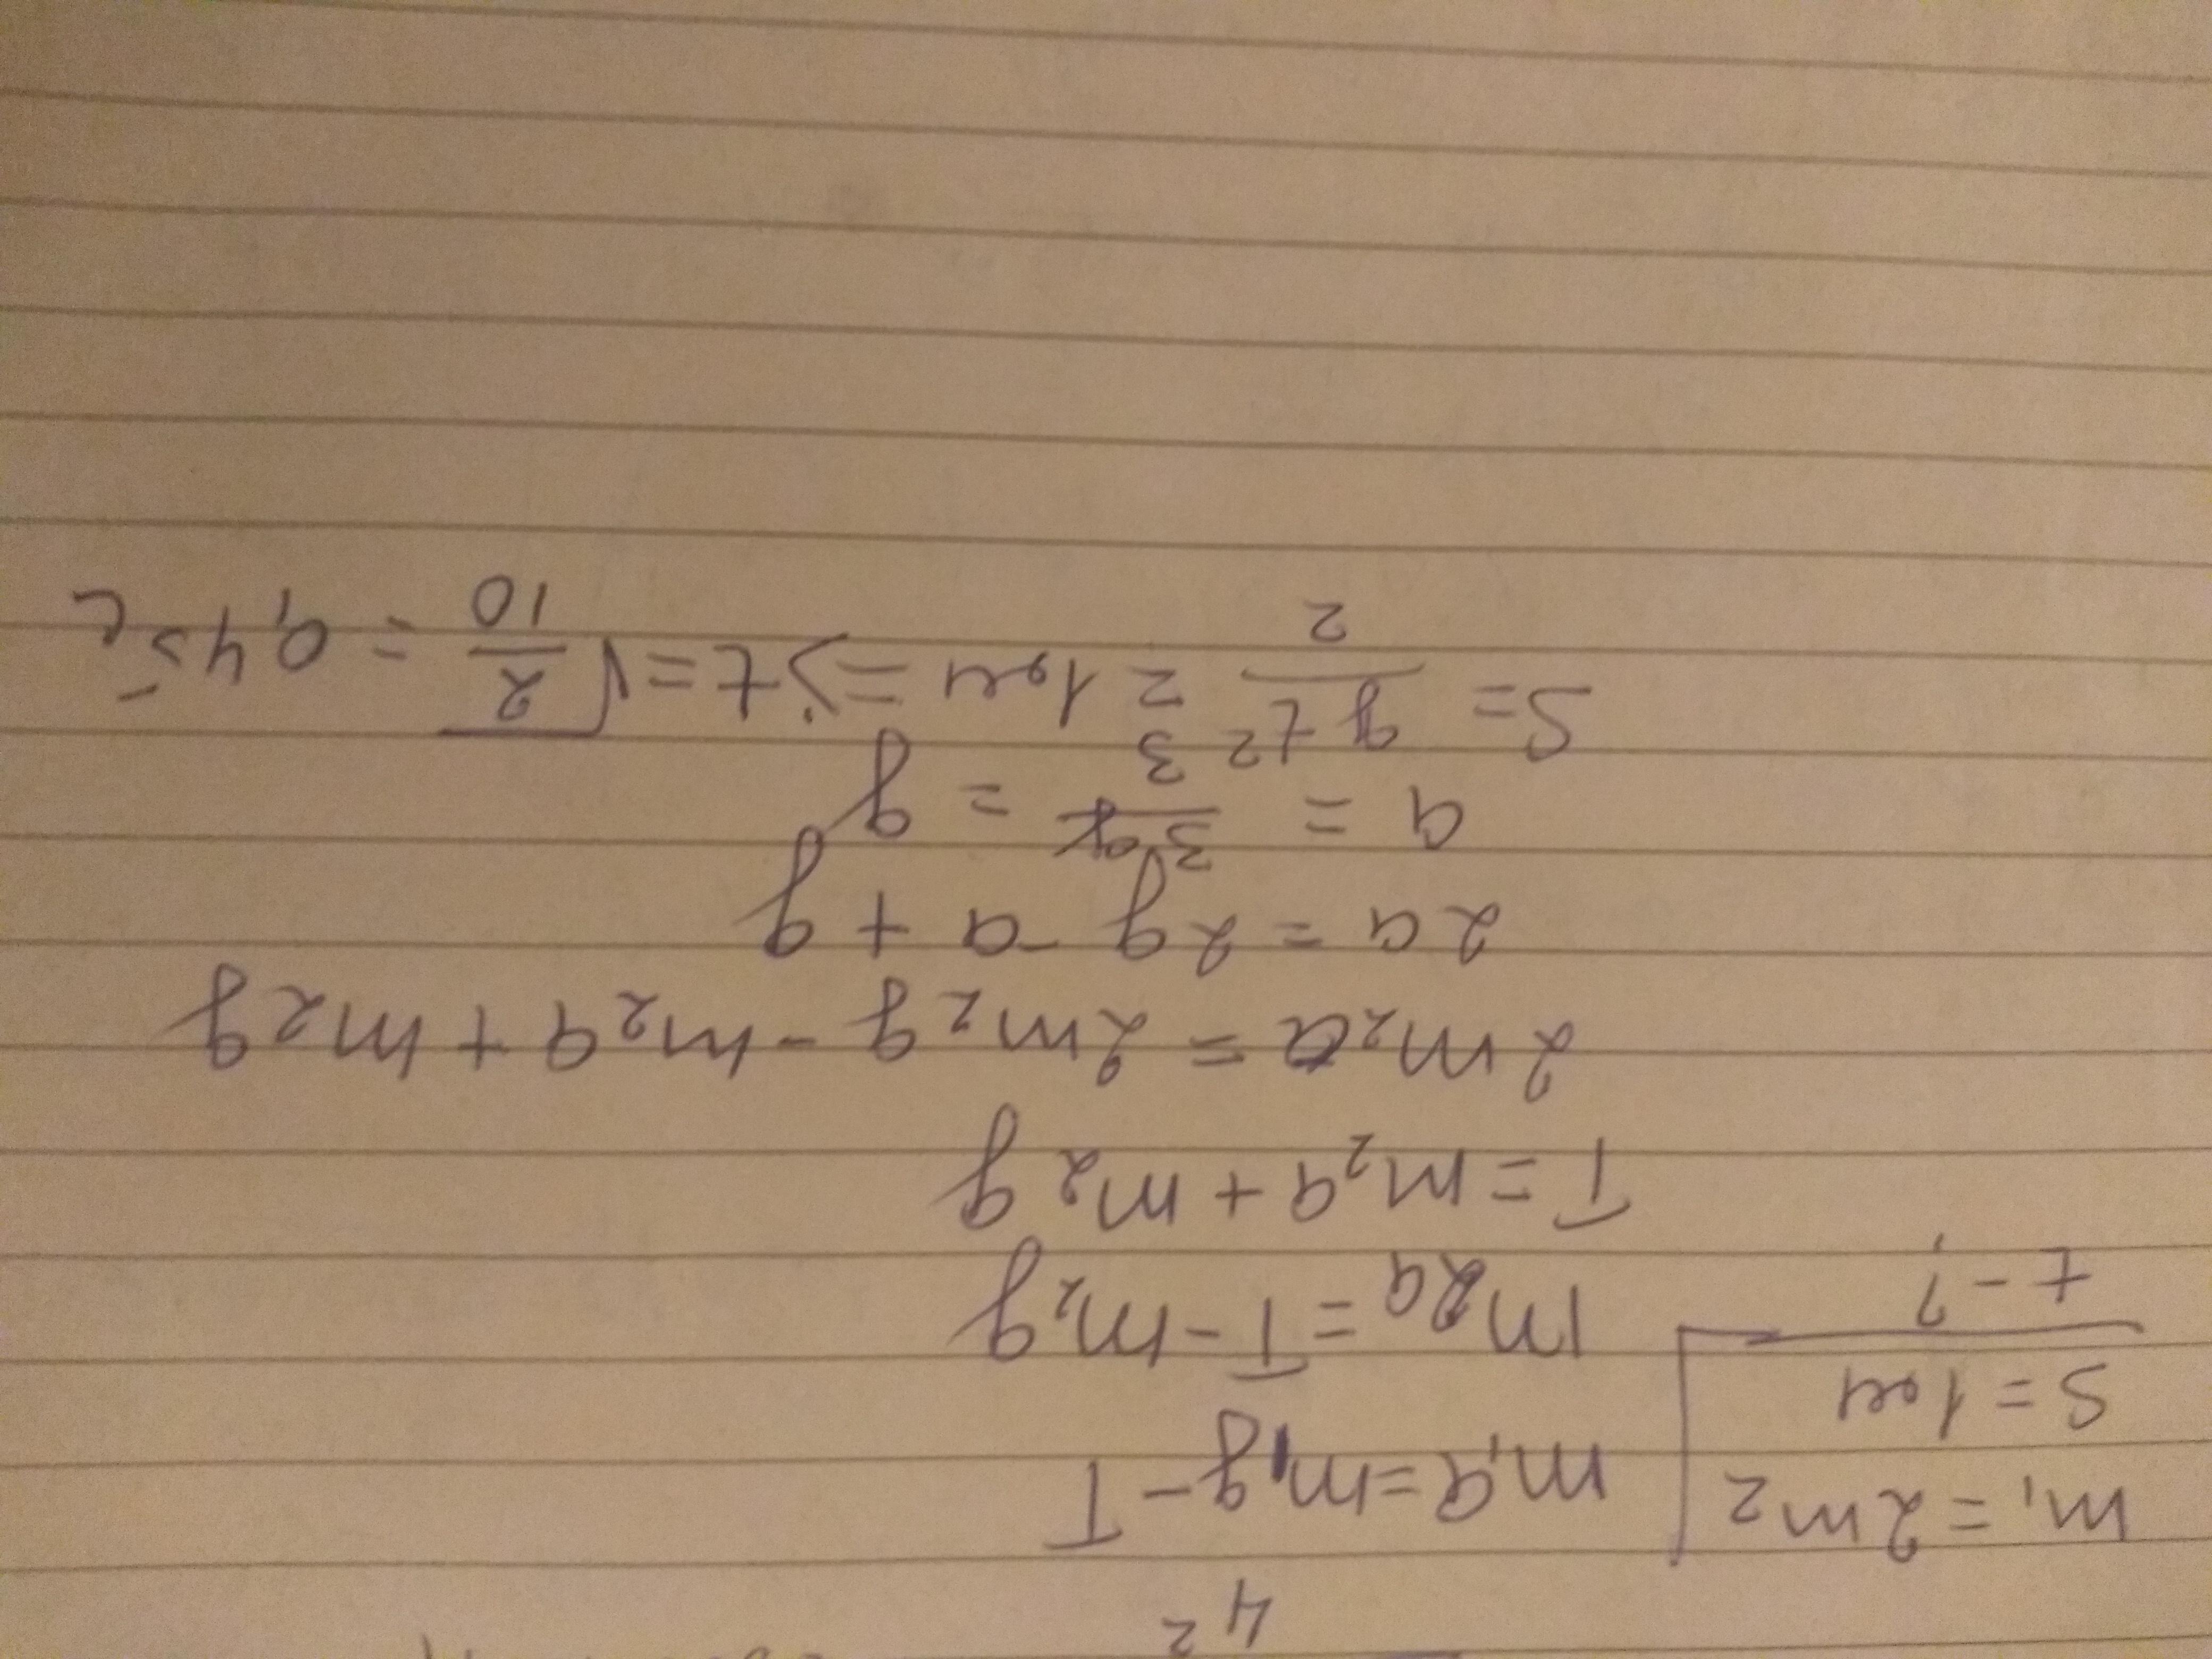 4²
m₁ = 2m₂
m₁a = m₁g - T
S = 1м
m₂a = T - m₂g
t - ?
T = m₂a + m₂g
2m₂a = 2m₂g - m₂a + m₂g
2a = 2g - a + g
a = 3g/3 = g
S = gt²/2 = 1м => t = √(2/10) = 0,45с